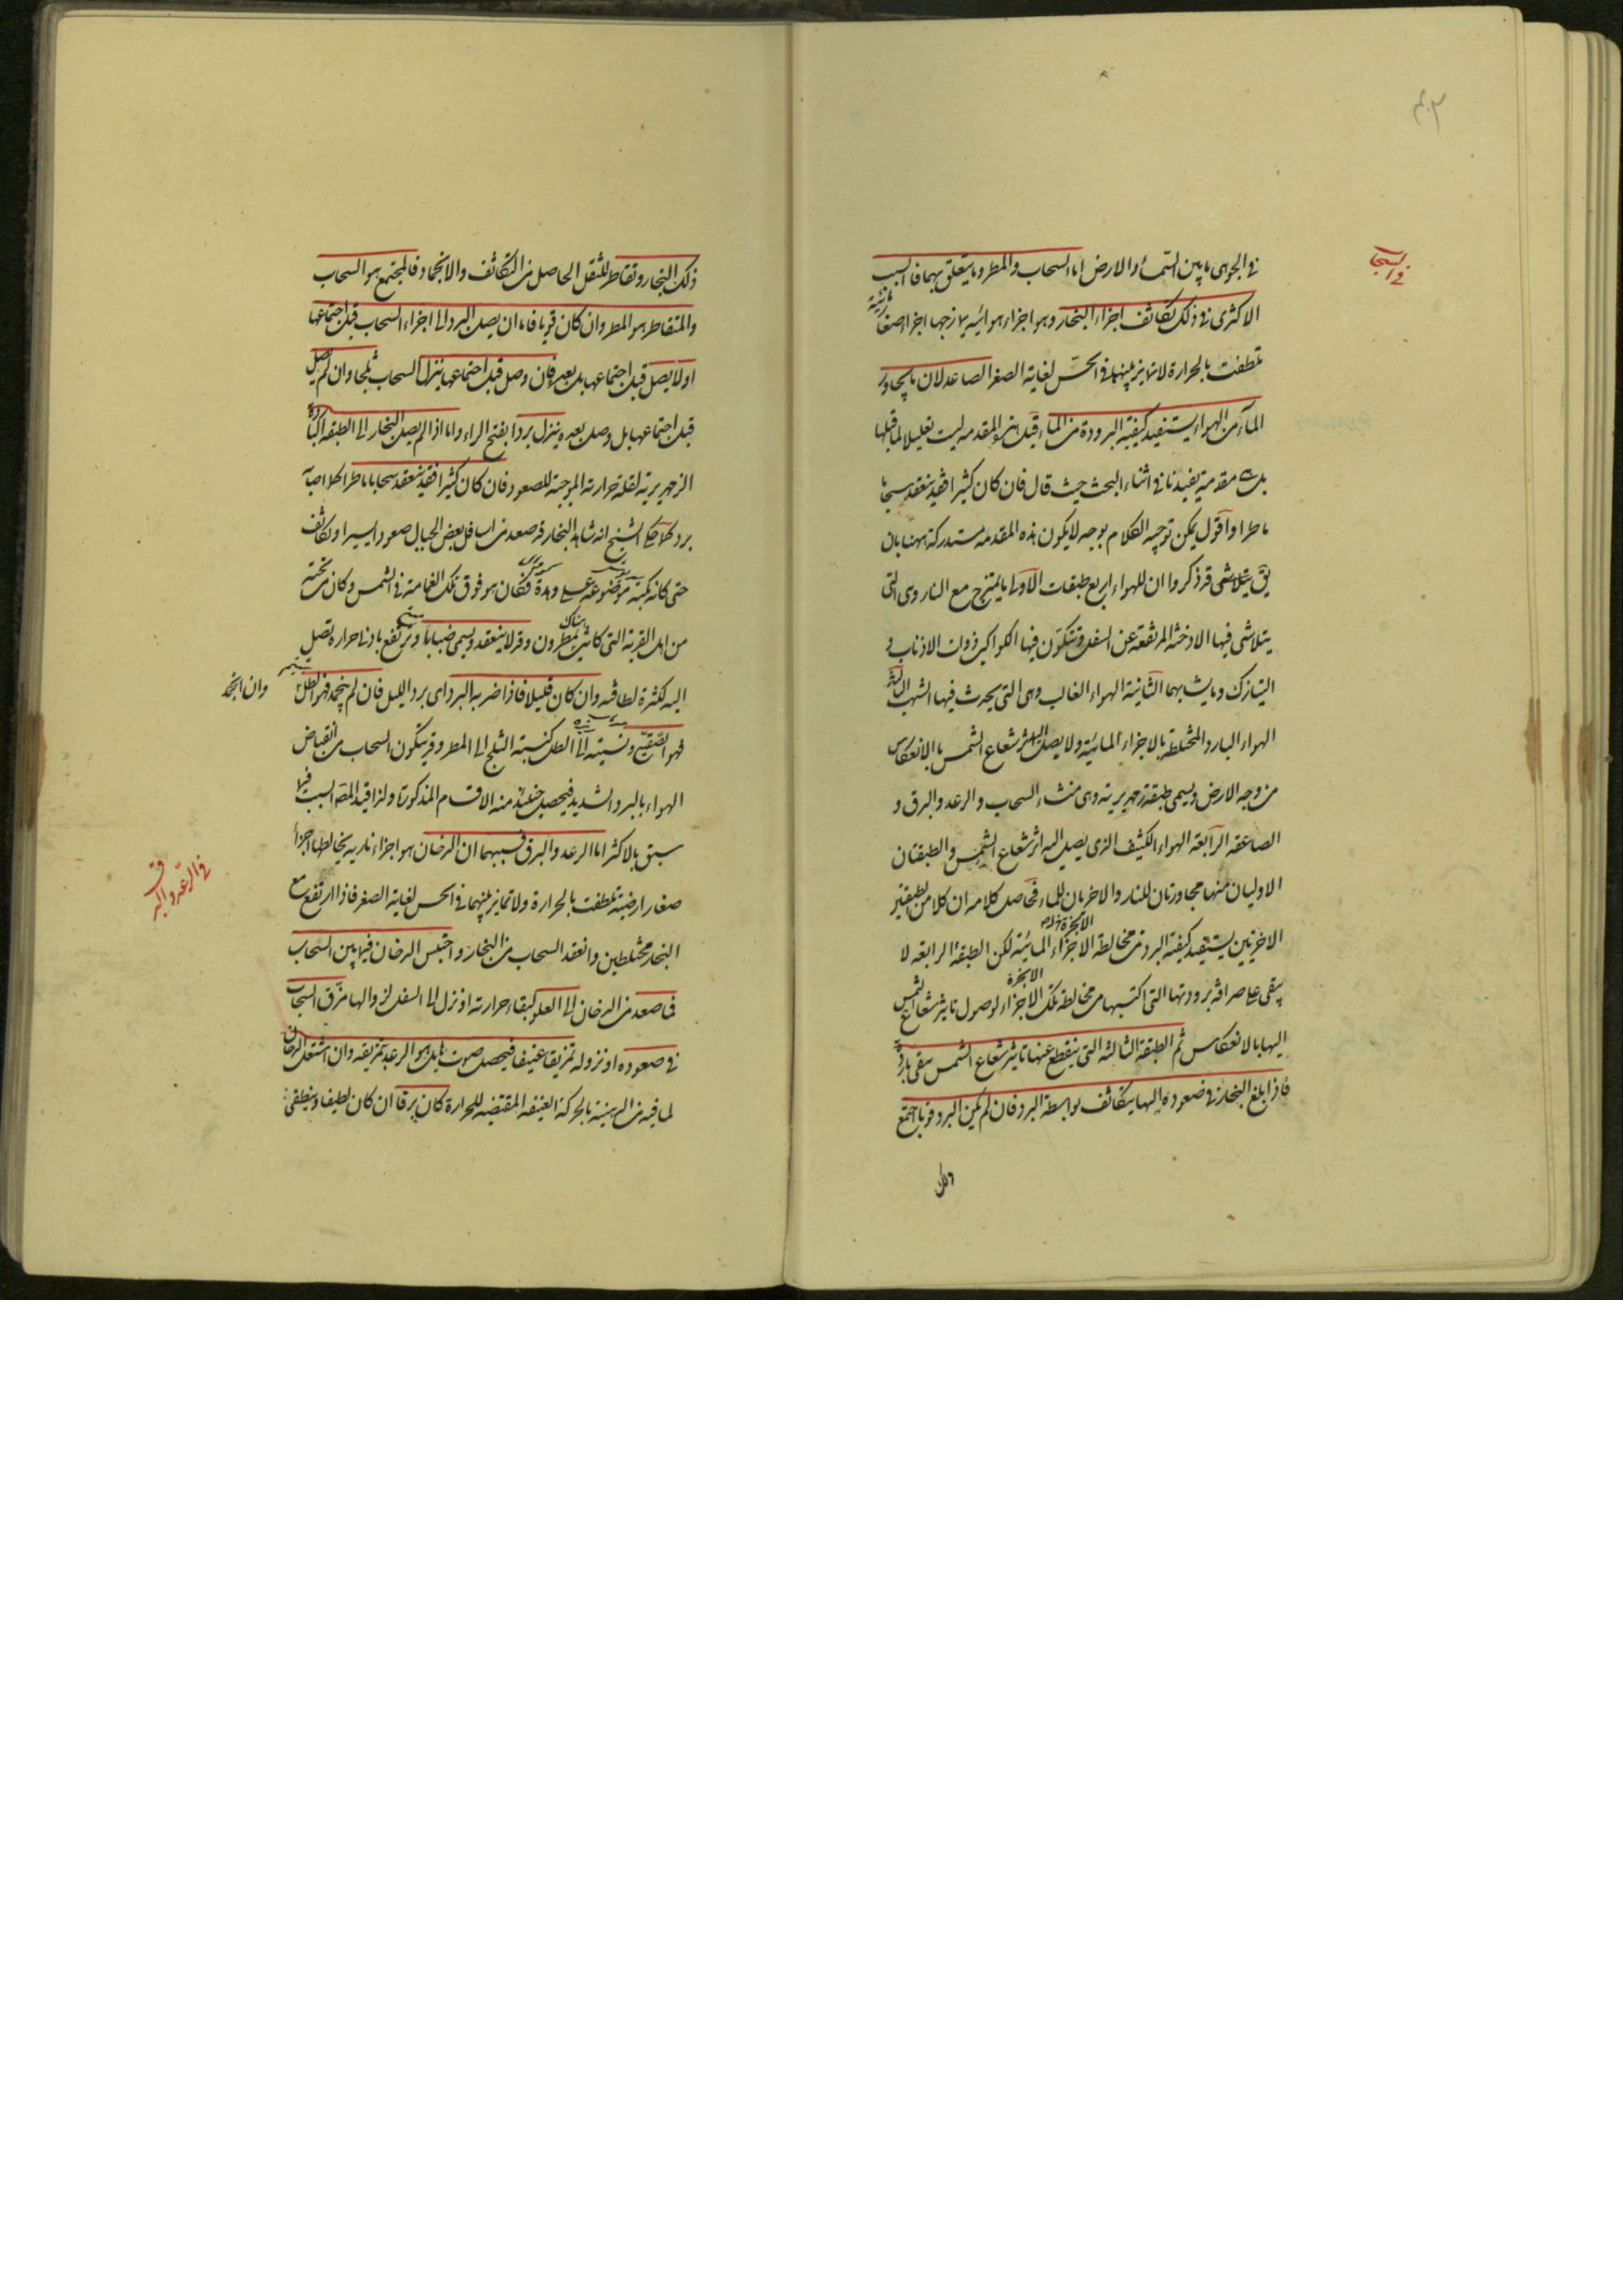 في السحاب
في الجو هي ما بين السماء والارض اما السحاب والمطر وما يتعلق بهما فالسبب
الاكثرى في ذلك تكاثف اجزاء البخار وهو اجزاء هوائية يمازجها اجزاء صغار مائية
تلطفت بالحرارة لا تمايز بينهما في الحس لغاية الصغر الصاعد لان ما يجاور
الماء من الهواء يستفيد كيفية البرودة من الماء قيل هذه المقدمة ليست تعليلا لما قبلها
بل هي مقدمة يفيدنا في اثناء البحث حيث قال فان كان كثيرا فقد ينعقد سحابا
ماطرا واقول يمكن توجيه الكلام بوجه لا يكون هذه المقدمة مستدركة ههنا بان
يق يتلاشى قد ذكروا ان للهواء اربع طبقات الاولى ما يمتزج مع النار وهي التي
يتلاشى فيها الادخنة المرتفعة عن السفل وتتكون فيها الكواكب ذوات الاذناب و
النيازك وما يشابهها الثانية الهواء الغالب وهي التي يحدث فيها الشهب الثالثة
الهواء البارد المختلط بالاجزاء المائية ولا يصل اليه اثر شعاع الشمس بالانعكاس
من وجه الارض ويسمى طبقة زمهريرية وهي منشاء السحاب والرعد والبرق و
الصاعقة الرابعة الهواء الكثيف الذي يصل اليه اثر شعاع الشمس والطبقتان
الاوليان منها مجاورتان للنار والاخريان للماء فحاصل كلامه ان كلا من الطبقتين
الاخريين يستفيد كيفية البرد من مخالطة الاجزاء المائية لكن الطبقة الرابعة لا
الابخرة
يبقى على صرافة برودتها التي اكتسبها من مخالطة تلك الاجزاء لوصول تاثير شعاع الشمس
الابخرة
اليها بالانعكاس ثم الطبقة الثالثة التي ينقطع عنها تاثير شعاع الشمس يبقى باردة
فاذا بلغ البخار في صعوده اليها يتكاثف بواسطة البرد فان لم يكن البرد قويا اجتمع
ذلك
ذلك البخار وتقاطر للثقل الحاصل من التكاثف والانجماد فالمجتمع هو السحاب
والمتقاطر هو المطر وان كان قويا فاما ان يصل البرد الى اجزاء السحاب قبل اجتماعها
اولا يصل قبل اجتماعها بل بعده فان وصل قبل اجتماعها ينزل السحاب ثلجا وان لم يصل
قبل اجتماعها بل وصل بعده ينزل بردا بفتح الراء واما اذا لم يصل البخار الى الطبقة الباردة
الزمهريرية لقلة حرارته الموجبة للصعود فان كان كثيرا فقد ينعقد سحابا ماطرا اذا اصابه
برد كما حكى الشيخ انه شاهد البخار قد صعد من اسافل بعض الجبال صعودا يسيرا وتكاثف
حتى كانه مكبة موضوعة على وهدة فكان هو فوق تلك الغمامة في الشمس وكان من تحته
من اهل القرية التي كانت هناك يمطرون وقد لا ينعقد ويسمى ضبابا ويرتفع بادنى حرارة تصل
اليه لكثرة لطافته وان كان قليلا فاذا ضربه البرد اى برد الليل فان لم ينجمد فهو الطل وان انجمد
فهو الصقيع ونسبته الى الطل كنسبة الثلج الى المطر وقد يتكون السحاب من انقباض
الهواء بالبرد الشديد فيحصل حينئذ منه الاقسام المذكورة ولذا قيد المص السبب فيما
سبق بالاكثر اما الرعد والبرق فسببهما ان الدخان هو اجزاء نارية يخالطها اجزاء
صغار ارضية تلطفت بالحرارة ولا تمايز بينهما في الحس لغاية الصغر فاذا ارتفع مع
البخار مختلطين وانعقد السحاب من البخار واحتبس الدخان فيما بين السحاب
فما صعد من الدخان الى العلو لبقاء حرارته او نزل الى السفل لزوالها مزق السحاب
في صعوده او نزوله تمزيقا عنيفا فيحصل صوت هائل هو الرعد بتمزيقه وان اشتعل الدخان
لما فيه من الدهنية بالحركة العنيفة المقتضية للحرارة كان برقا ان كان لطيفا وينطفي
في الرعد والبرق